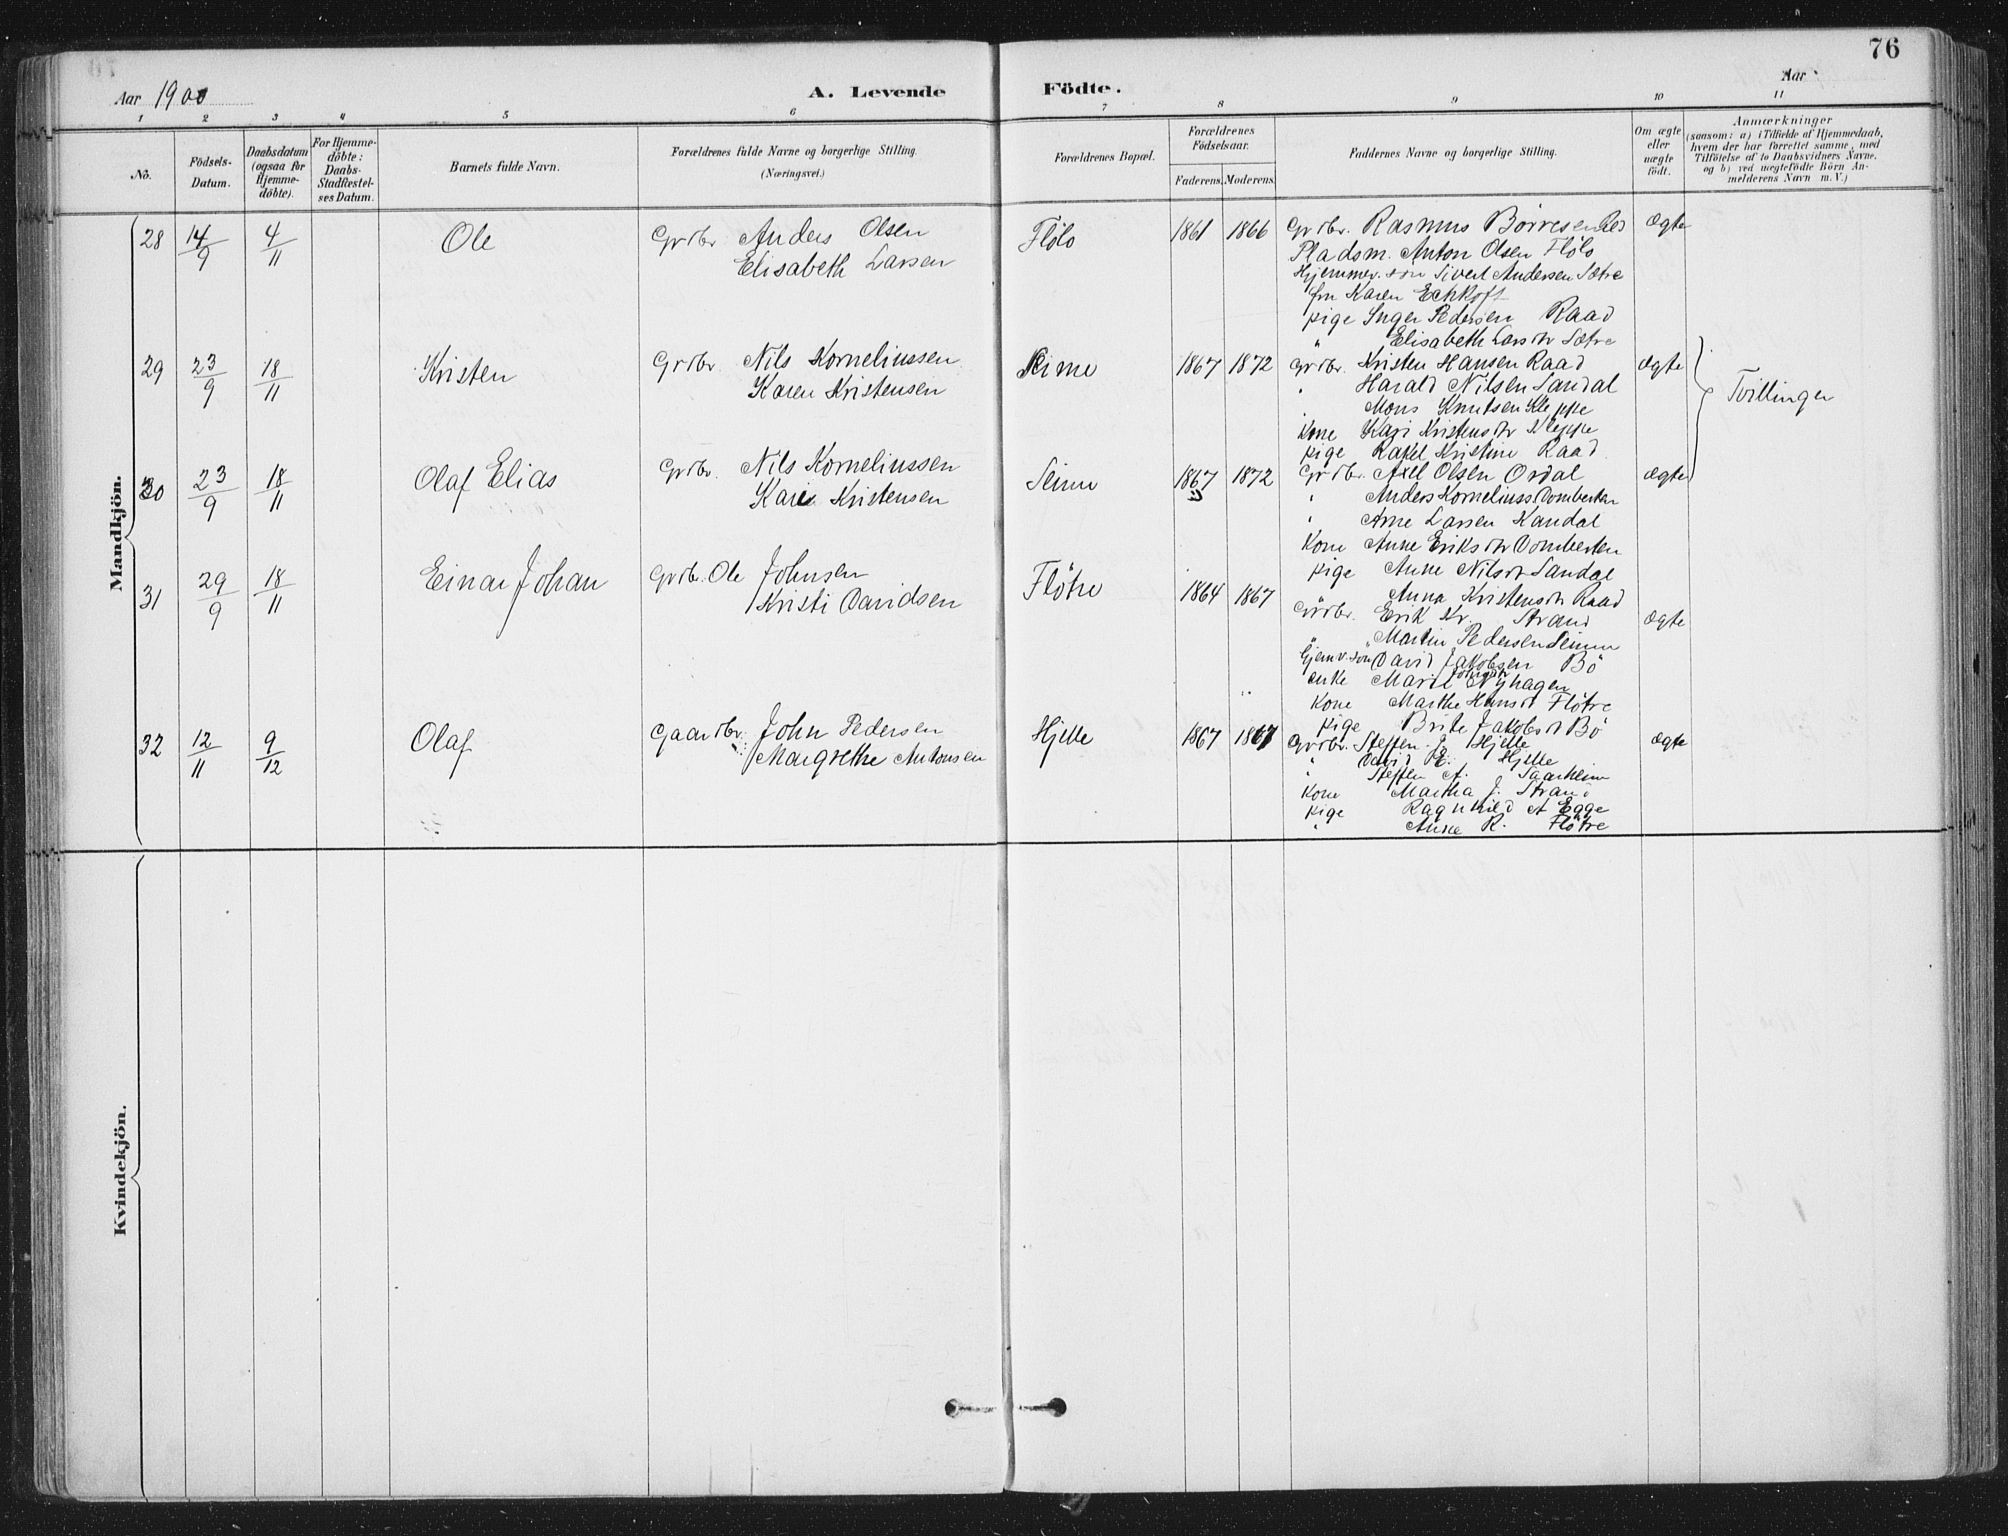 76
Aar 1900
A. Levende Fødte.
Aar
1 2 3 4 5 6 7 8 9 10 11
No.
Födsels-Datum.
Daabsdatum (ogsaa for Hjemmedöbte).
For Hjemmedöbte: Daabs-Stadfæstelses Datum.
Barnets fulde Navn.
Forældrenes fulde Navne og borgerlige Stilling. (Næringsvei.)
Forældrenes Bopæl.
Forældrenes Födselsaar.
Faderens. Moderens.
Faddernes Navne og borgerlige Stilling.
Om ægte eller uægte födt.
Anmærkninger (saasom: a) i Tilfælde af Hjemmedaab, hvem der har forrettet samme, med Tilföielse af to Daabsvidners Navne, og b) ved uægtefödte Börn Anmelderens Navn m. V.)
Mandkjön.
28 14/9 4/11 Ole Grdbr Anders Olsen Flølo 1861 1866 Grdbr. Rasmus Börresen ægte
Elisabeth Larsen
Pladsm. Anton Olsen Flølo
Hjemmev. søn Sivert Andersen Sætre
fru Karen Eckhoff
pige Inger Pedersen Raad
" Elisabeth Larsdtr Sætre
29 23/9 18/11 Kristen Grdbr. Nils Korneliussen Seime 1867 1872 Grdbr. Kristen Hansen Raad ægte
Karen Kristensen
" Harald Nilsen Sandal
" Mons Knutsen Kleppe
Kone Kari Kristensdtr Kleppe
pige Rakel Kristine Raad
Tvillinger
30 23/9 18/11 Olaf Elias Grdbr. Nils Korneliussen Seime 1867 1872 Grdbr. Axel Olsen Ordal ægte
Kari Kristensen
" Anders Korneliuss
" Arne Larsen Kandal
Kone Anne Eriksdtr
pige Anne Nilsdt Sandal
Anna Kristensdtr Raad
31 29/9 18/11 Einar Johan Grdb. Ole Johnsen Fløtre 1864 1867 Grdbr. Erik Kr. Strand ægte
Kristi Davidsen
" Martin Pedersen Seime
Hjemv. søn David Jakobsen Bö
enke Marie Nyhagen
Kone Marthe Hansdt Fløtre
pige Brite Jakobsdt Bö
32 12/11 9/12 Olaf Gaardbr. John Pedersen Hjelle 1867 1867 Grdbr. Steffen J. Hjelle ægte
Margrethe Antonsen
" David E. Hjelle
" Steffen A. Saarheim
Kone Martha J. Strand
pige Ragnhild A Egge
" Anne R. Fløtre
Kvindekjön.